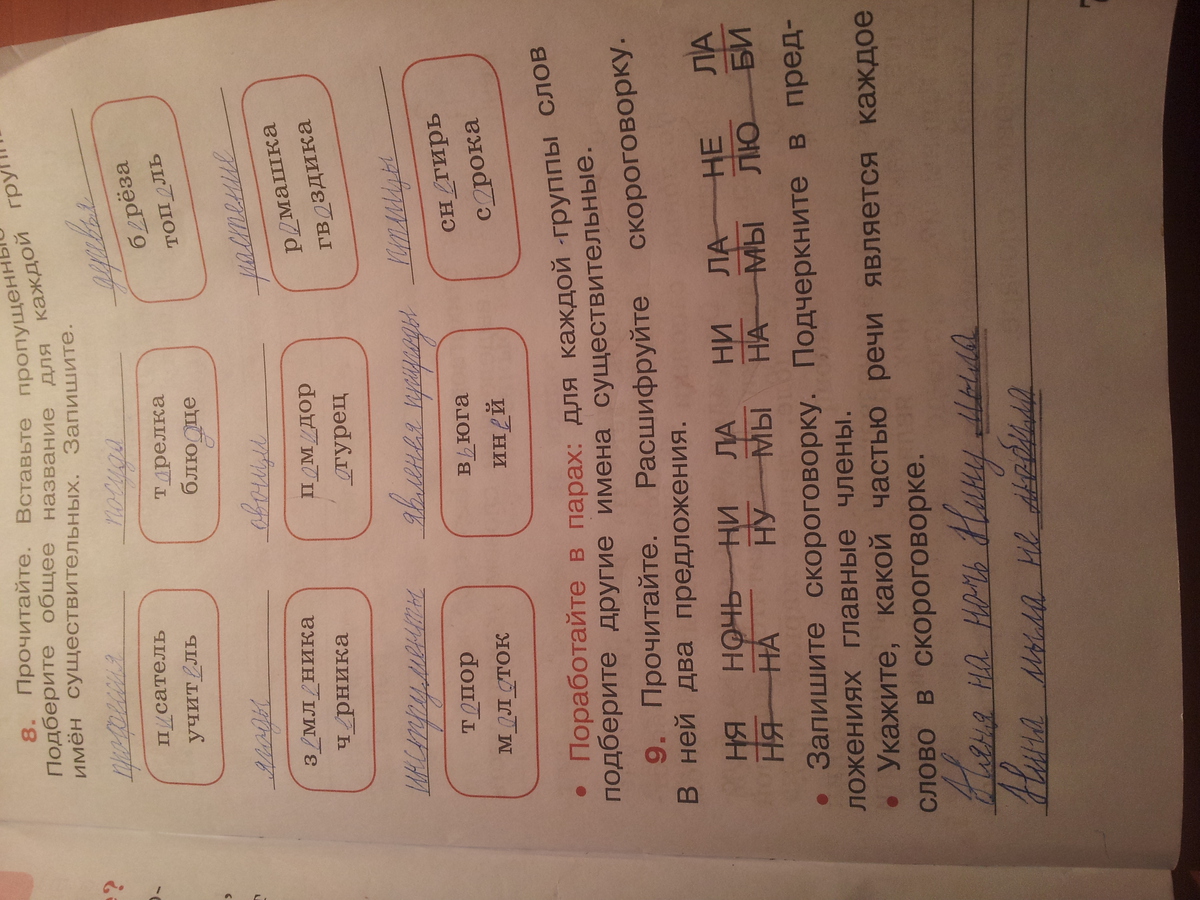 8. Прочитайте. Вставьте пропущенные
Подберите общее название для каждой групп
имён существительных. Запишите.
профессия посуда деревья
писатель тарелка берёза
учитель блюдце тополь
ягоды овощи растение
земленика помидор ромашка
черника огурец гвоздика
инструменты явления природы птицы
топор вьюга снегирь
молоток иней сорока
• Поработайте в парах: для каждой группы слов
подберите другие имена существительные.
9. Прочитайте. Расшифруйте скороговорку.
В ней два предложения.
НЯ НОЧЬ НИ ЛА НИ ЛА НЕ ЛА
НЯ НА НУ МЫ НА МЫ ЛЮ БИ
• Запишите скороговорку. Подчеркните в пред-
ложениях главные члены.
• Укажите, какой частью речи является каждое
слово в скороговорке.
Няня на ночь Нину мыла
Нина мыла не любила